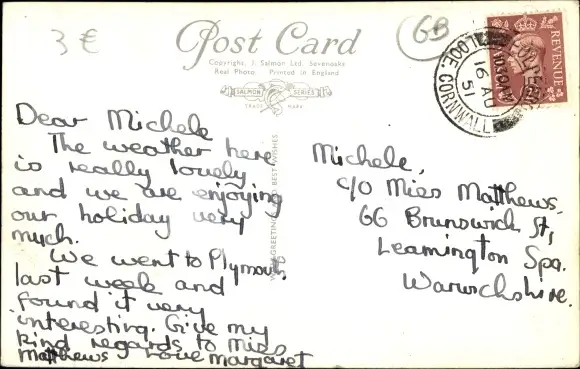 3 €
GB
Post Card
Copyright, J. Salmon Ltd. Sevenoaks
Real Photo Printed in England
SALMON SERIES
TRADE MARK
REVENUE
LOOE. CORNWALL
16 AU
51
Dear Michele
The weather here
is really lovely
and we are enjoying
our holiday very
much.
We went to Plymouth
last week and
found it very
interesting. Give my
kind regards to Miss
Matthews love Margaret
BEST WISHES
Michele,
c/o Miss Matthews.
66 Brunswick St,
Leamington Spa.
Warwickshire.